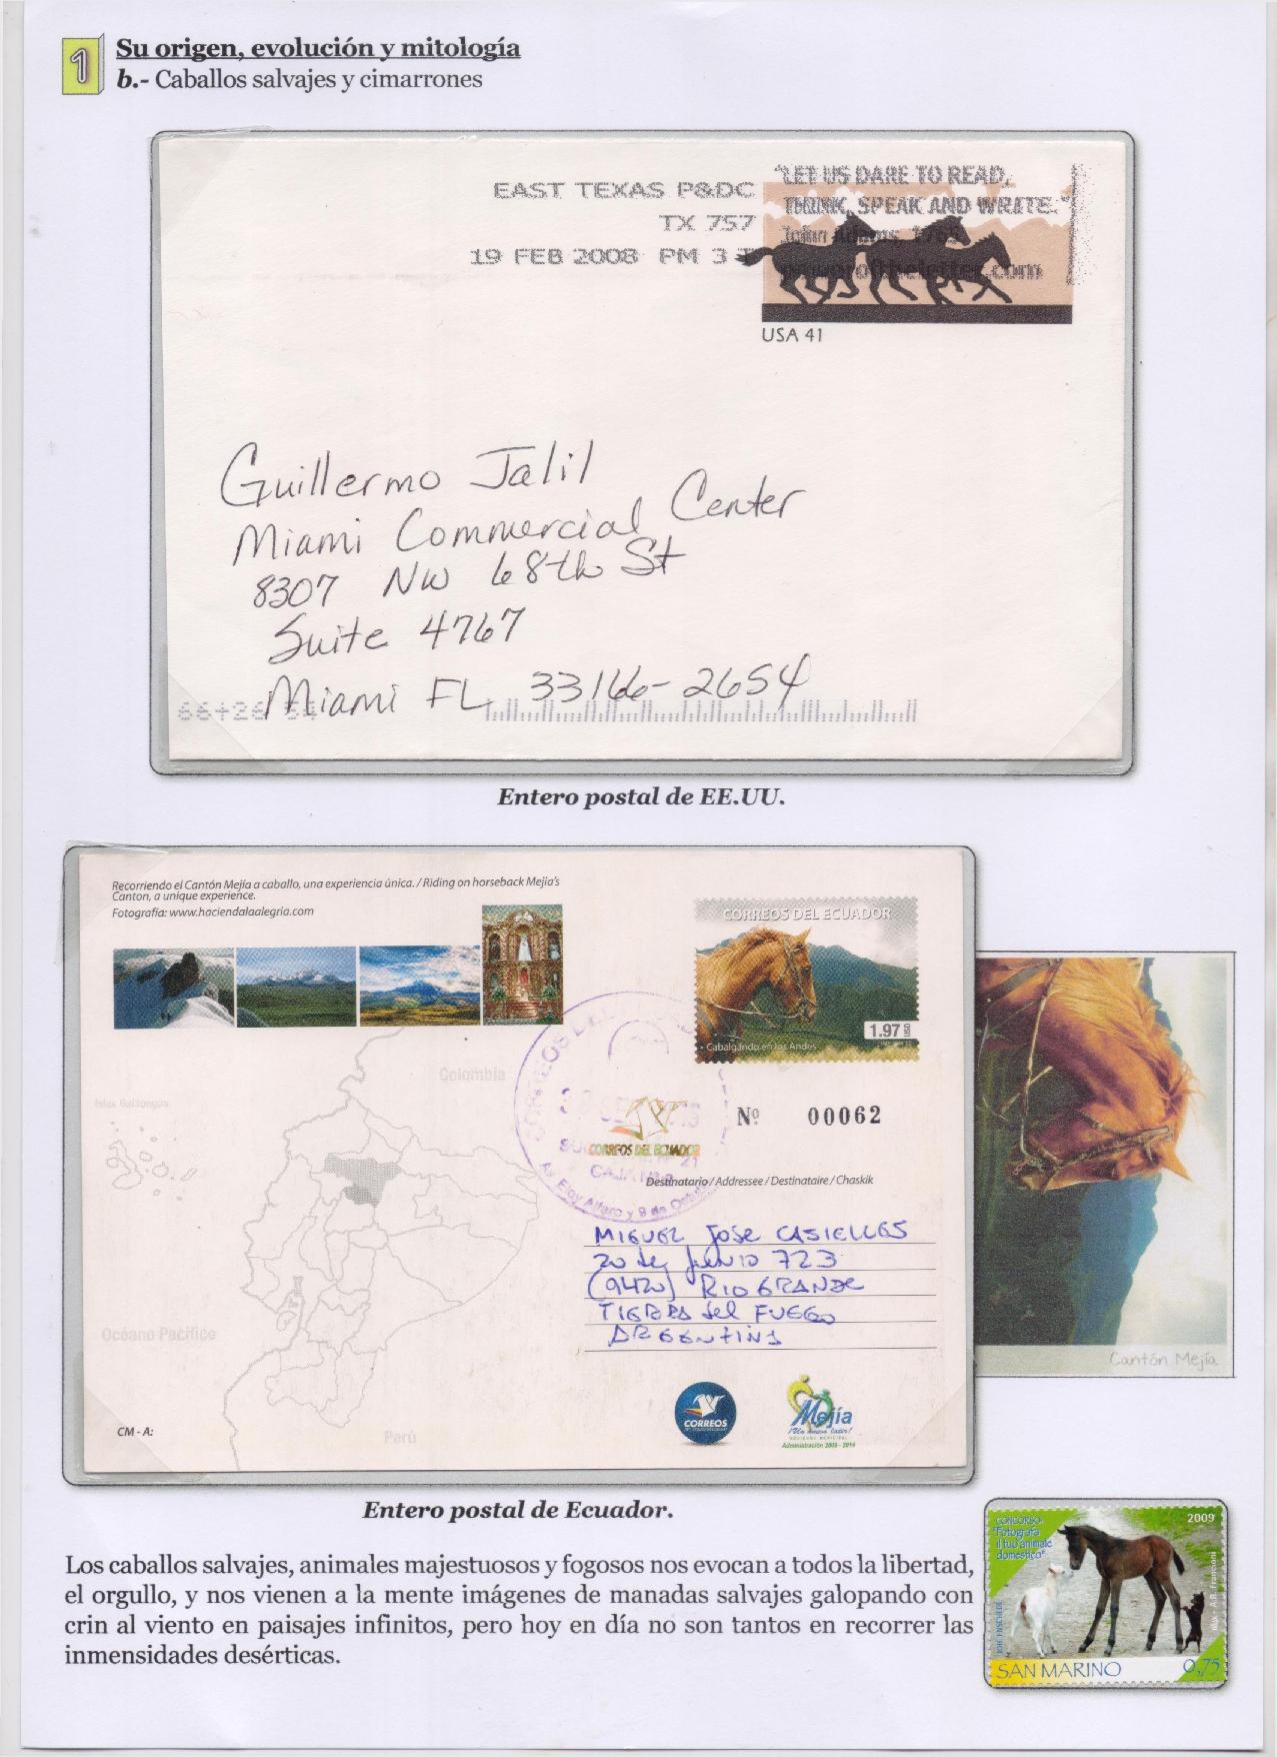 1
Su origen, evolución y mitología
b.- Caballos salvajes y cimarrones
EAST TEXAS P&DC
TX 757
19 FEB 2008 PM 3 T
"LET US DARE TO READ,
THINK, SPEAK AND WRITE."
John Adams
USA 41
Guillermo Jalil
Miami Commercial Center
8307 NW 68th St
Suite 4767
Miami FL 33166-2654
Entero postal de EE.UU.
Recorriendo el Cantón Mejía a caballo, una experiencia única. / Riding on horseback Mejia's
Canton, a unique experience.
Fotografía: www.haciendalaalegria.com
CORREOS DEL ECUADOR
1.97 USD
• Cabalgando en los Andes
Colombia
Islas Galápagos
Nº 00062
CORREOS DEL ECUADOR
Av. Eloy Alfaro y 9 de
Destinatario / Addressee / Destinataire / Chaskik
MIGUEL JOSE CASIELLES
20 de JUNIO 723
(9420) RIO GRANDE
TIERRA del FUEGO
ARGENTINA
Océano Pacífico
Perú
CM - A:
CORREOS
Mejía
Administración 2009 - 2014
Cantón Mejía
Entero postal de Ecuador.
Los caballos salvajes, animales majestuosos y fogosos nos evocan a todos la libertad,
el orgullo, y nos vienen a la mente imágenes de manadas salvajes galopando con
crin al viento en paisajes infinitos, pero hoy en día no son tantos en recorrer las
inmensidades desérticas.
CONCORSO
"Fotografa
il tuo animale
domestico"
2009
SAN MARINO
0,75